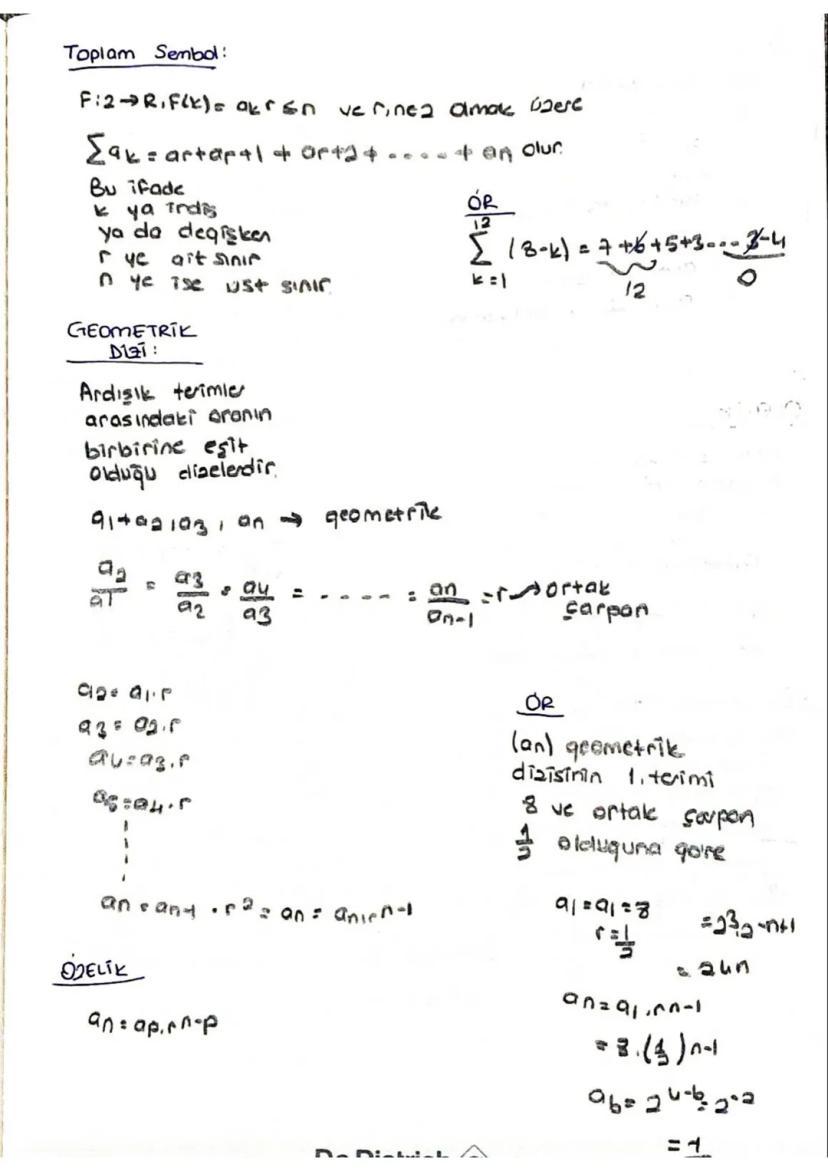 Toplam Sembol:
F:2→R, F(k)= ak r≤n ve r,n∈2 olmak üzere
∑ak = ar+ar+1 + ar+2 + ..... + an olur.
Bu ifade
k ya indis
ya da değişken
r ye ait sınır
n ye ise üst sınır.
ÖR
12
∑ (8-k) = 7+6+5+3.... 3-4
k=1
12
0
GEOMETRİK
DİZİ:
Ardışık terimler
arasındaki oranın
birbirine eşit
olduğu dizelerdir.
a1+a2,a3, an → geometrik
a2/a1 = a3/a2 = a4/a3 = ..... = an/an-1 = r → ortak
çarpan
a2= a1.r
a3= a2.r
a4=a3.r
a5=a4.r
an = an-1 . r2 = an = an.rn-1
ÖZELİK
an = ap.rn-p
ÖR
(an) geometrik
dizisinin 1. terimi
8 ve ortak çarpan
1/2 olduguna göre
a1=a1=8
r=1/2
=23.2-n+1
= 24n
an=a1.rn-1
= 8.(1/2)n-1
a6= 24-6= 2-2
= 1